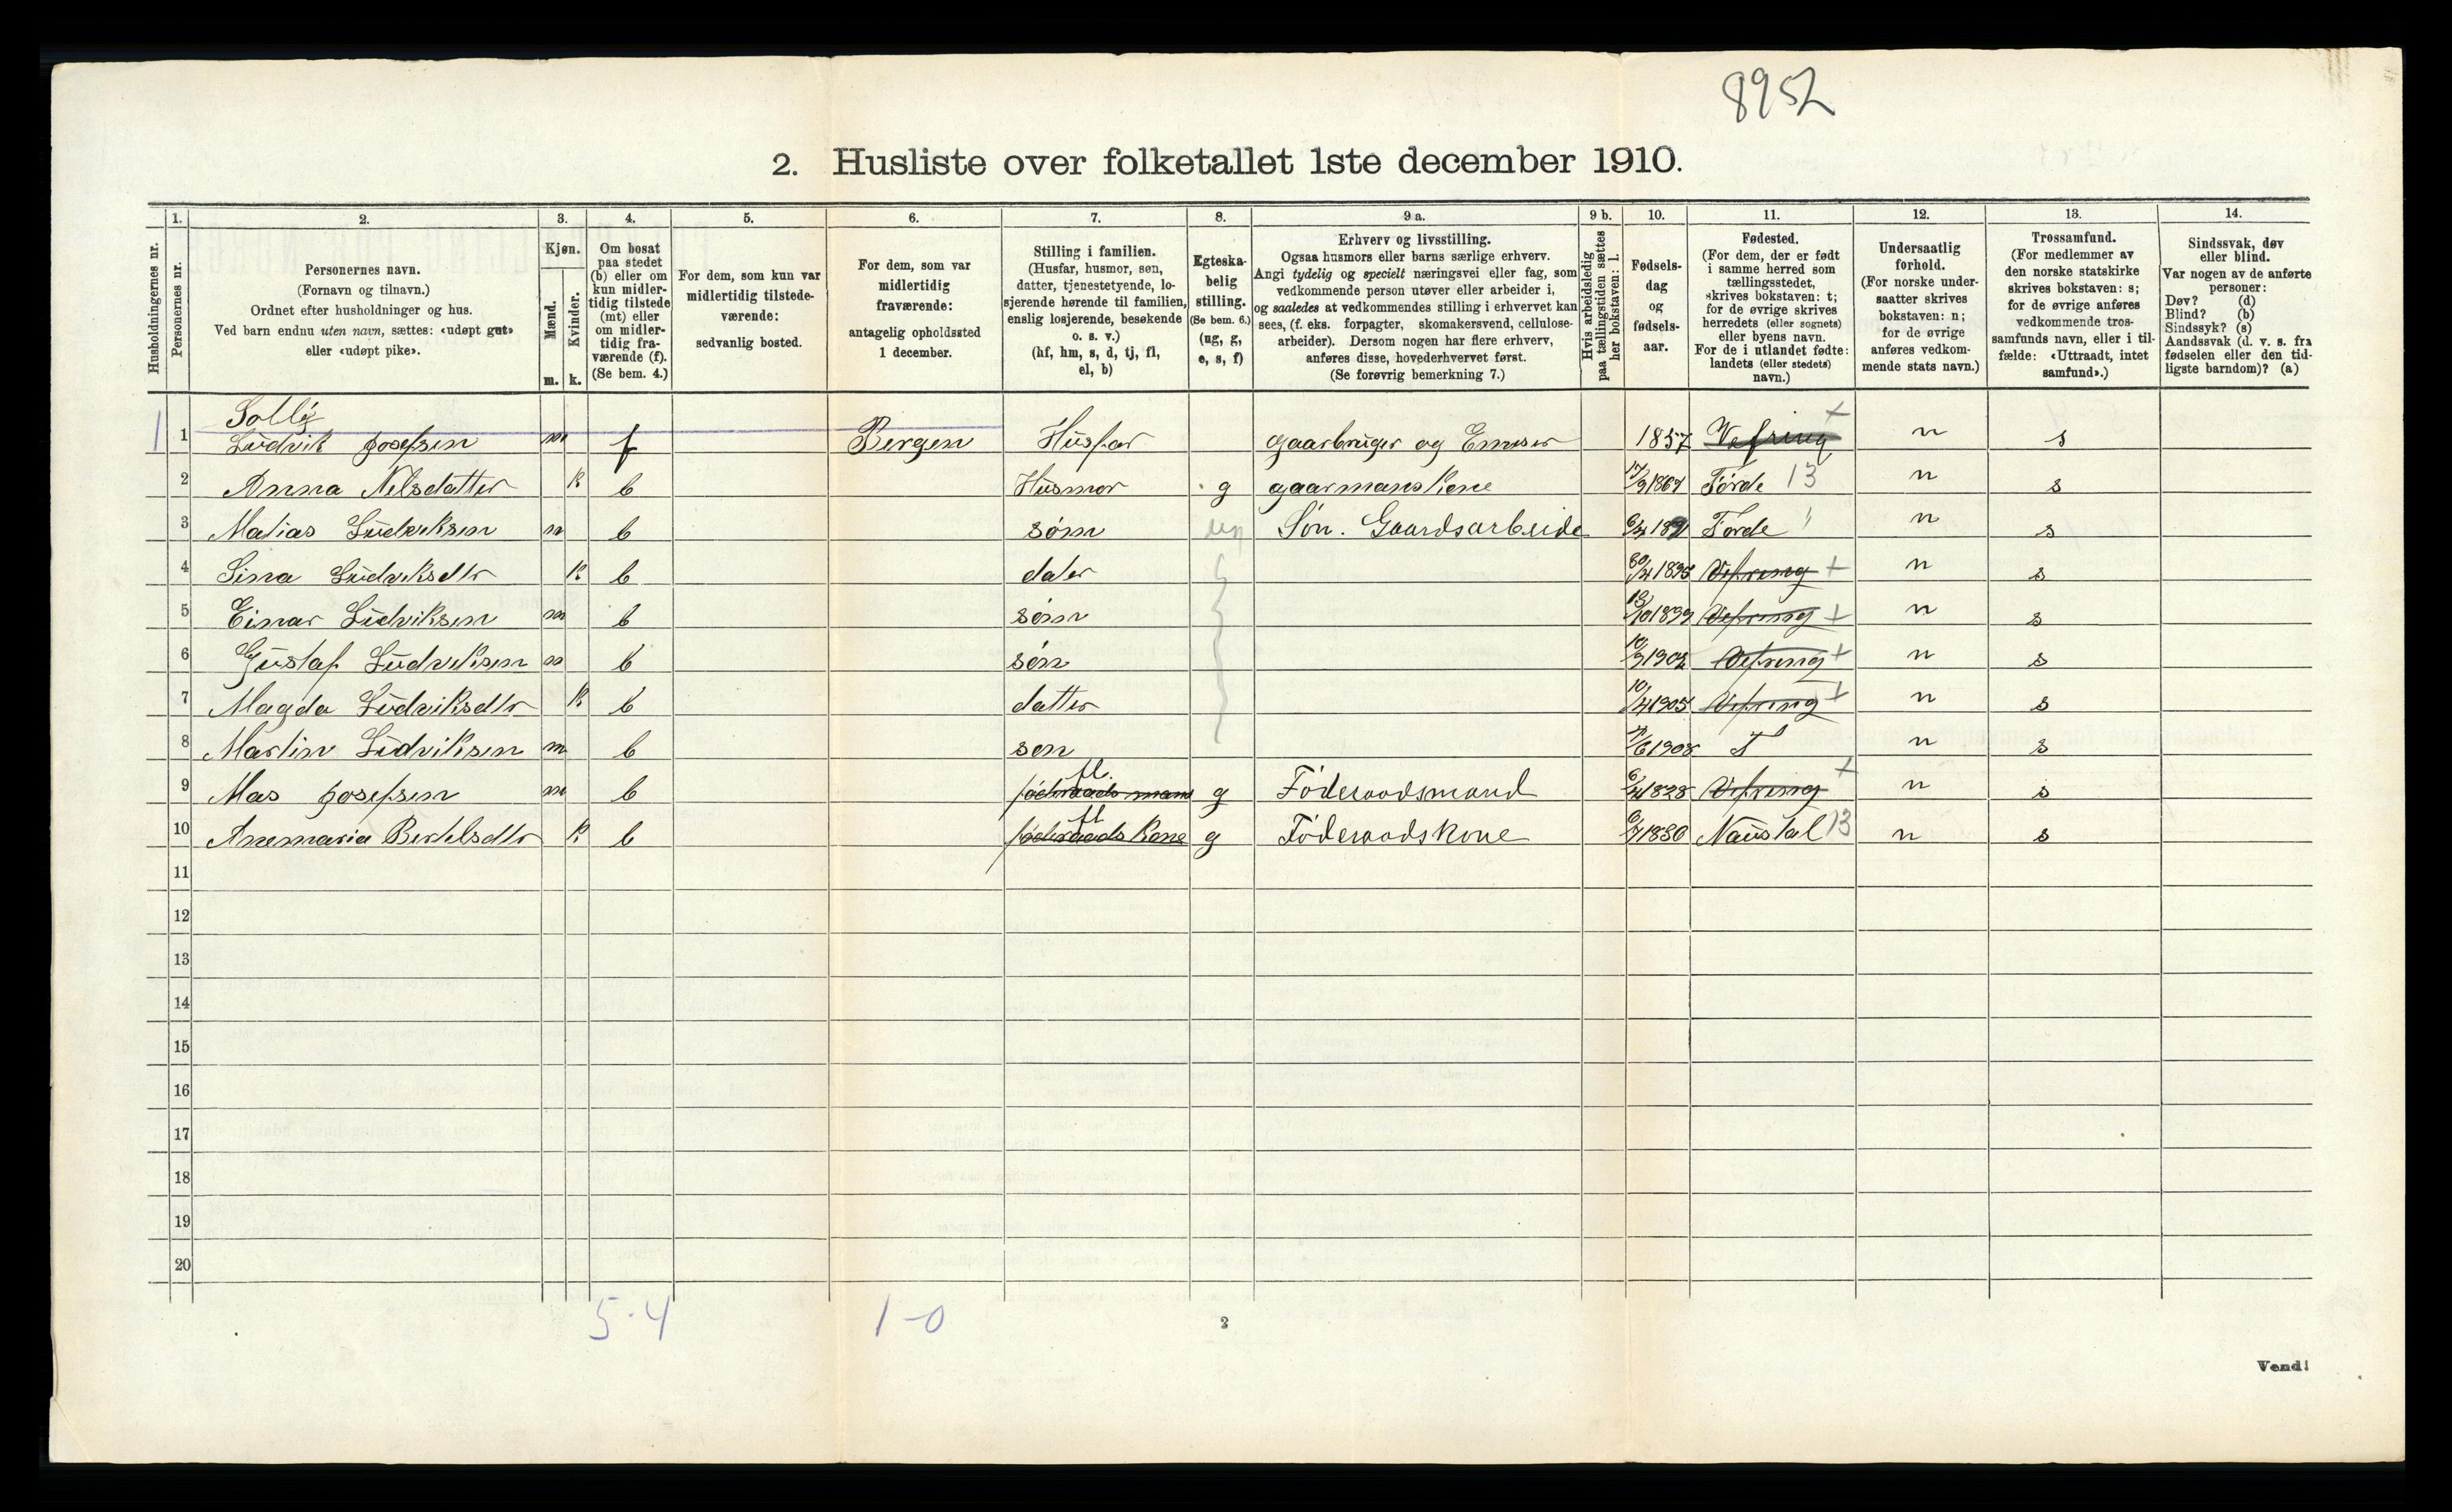 8952
2. Husliste over folketallet 1ste december 1910.
Husholdningernes nr.
1.
Personernes nr.
2.
Personernes navn.
(Fornavn og tilnavn.)
Ordnet efter husholdninger og hus.
Ved barn endnu uten navn, sættes: «udøpt gut»
eller «udøpt pike».
3.
Kjøn.
Mænd.
Kvinder.
m. k.
4.
Om bosat
paa stedet
(b) eller om
kun midler-
tidig tilstede
(mt) eller
om midler-
tidig fra-
værende (f).
(Se bem. 4.)
5.
For dem, som kun var
midlertidig tilstede-
værende:
sedvanlig bosted.
6.
For dem, som var
midlertidig
fraværende:
antagelig opholdssted
1 december.
7.
Stilling i familien.
(Husfar, husmor, søn,
datter, tjenestetyende, lo-
sjerende hørende til familien,
enslig losjerende, besøkende
o. s. v.)
(hf, hm, s, d, tj, fl,
el, b)
8.
Egteska-
belig
stilling.
(Se bem. 6.)
(ug, g,
e, s, f)
9 a.
Erhverv og livsstilling.
Ogsaa husmors eller barns særlige erhverv.
Angi tydelig og specielt næringsvei eller fag, som
vedkommende person utøver eller arbeider i,
og saaledes at vedkommendes stilling i erhvervet kan
sees, (f. eks. forpagter, skomakersvend, cellulose-
arbeider). Dersom nogen har flere erhverv,
anføres disse, hovederhvervet først.
(Se forøvrig bemerkning 7.)
9 b.
Hvis arbeidsledig
paa tællingstiden sættes
her bokstaven: l.
10.
Fødsels-
dag
og
fødsels-
aar.
11.
Fødested.
(For dem, der er født
i samme herred som
tællingsstedet,
skrives bokstaven: t;
for de øvrige skrives
herredets (eller sognets)
eller byens navn.
For de i utlandet fødte:
landets (eller stedets)
navn.)
12.
Undersaatlig
forhold.
(For norske under-
saatter skrives
bokstaven: n;
for de øvrige
anføres vedkom-
mende stats navn.)
13.
Trossamfund.
(For medlemmer av
den norske statskirke
skrives bokstaven: s;
for de øvrige anføres
vedkommende tros-
samfunds navn, eller i til-
fælde: «Uttraadt, intet
samfund».)
14.
Sindssvak, døv
eller blind.
Var nogen av de anførte
personer:
Døv? (d)
Blind? (b)
Sindssyk? (s)
Aandssvak (d. v. s. fra
fødselen eller den tid-
ligste barndom)? (a)
1 1 Ludvik Josefsen m f Bergen Husfar gaarbruger og 1857 Vefring + n s
2 Anna Nelsdatter k b Husmor g gaarmans kone Førde 13 n s
3 Matias Ludviksen m b sønn ug Søn. Gaardsarbeide Førde " n s
4 Sina Ludviksdtr k b dater Vefring + n s
5 Einar Ludviksen m b sønn 13/10 1899 Vefring + n s
6 Gustaf Ludviksen m b søn Vefring + n s
7 Magda Ludviksdtr k b datter 10/4 1905 Vefring + n s
8 Martin Ludviksen m b søn T n s
9 Mas Josefsen m b føderaads mann fl. g Føderaadsmand 6/4 1828 Vefring + n s
10 Anemaria Bertelsdtr k b føderaads kone fl g Føderaadskone Naustal 13 n s
11
12
13
14
15
16
17
18
19
20
5-4
1-0
2
Vend!